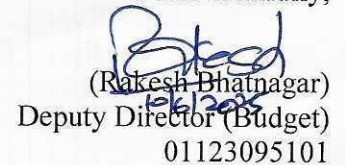 (Rakesh Bhatnagar)
10/6/2025
Deputy Director (Budget)
01123095101